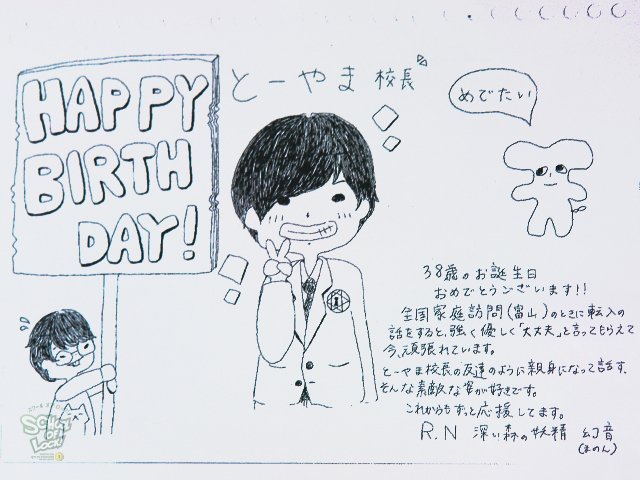 HAPPY
BIRTH
DAY!
とーやま校長
めでたい
38歳のお誕生日
おめでとうございます!!
全国家庭訪問(富山)のときに転入の
話をすると、強く優しく「大丈夫」と言ってもらえて
今、頑張れています。
とーやま校長の友達のように親身になって話す、
そんな素敵な姿が好きです。
これからもずっと応援してます。
R.N 深い森の妖精 幻音
(まのん)
SCHOOL
OF
LOCK!